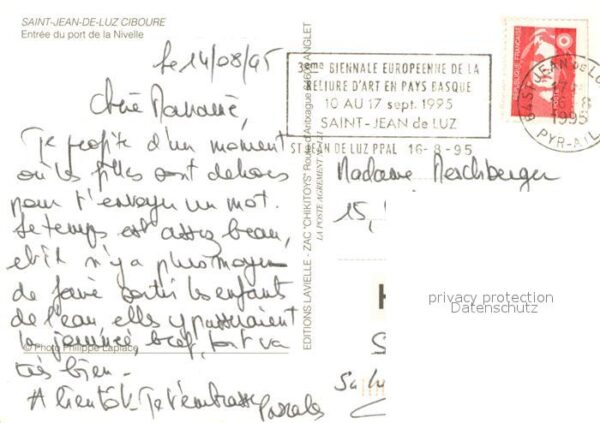 SAINT-JEAN-DE-LUZ CIBOURE
Entrée du port de la Nivelle
le 14/08/95
Chère Maman,
Je profite d'un moment
où les filles sont dehors
pour t'envoyer un mot.
Le temps est assez beau,
et il n'y a plus moyen
de faire sortir les enfants
de l'eau, elles y passeraient
la journée, bref, tout va
très bien -
A bientôt. Je t'embrasse Pascale
© Photo Philippe Laplace
EDITIONS LAVIELLE - ZAC "CHIKITOYS" Route d'Arbague 64600 ANGLET
LA POSTE AGREMENT
3eme BIENNALE EUROPEENNE DE LA
RELIURE D'ART EN PAYS BASQUE
10 AU 17 sept. 1995
SAINT-JEAN de LUZ
ST JEAN DE LUZ PPAL 16-8-95
REPUBLIQUE FRANÇAISE
64 ST JEAN DE LUZ
17
8
1995
PYR-ATL
Madame Merchberger
15,
privacy protection
Datenschutz